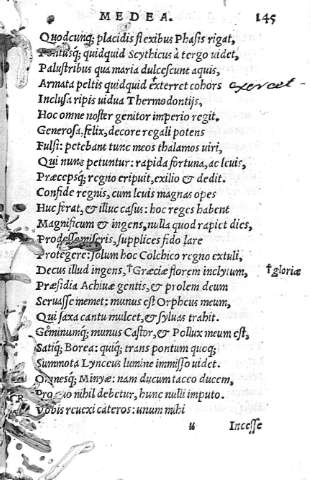 MEDEA. 145
Quodcunq; placidis flexibus Phasis rigat,
Pontusq; quidquid Scythicus à tergo uidet,
Palustribus qua maria dulcescunt aquis,
Armata peltis quidquid †exterret cohors
Inclusa ripis uidua Thermodontijs,
Hoc omne noster genitor imperio regit.
Generosa, felix, decore regali potens
Fulsi: petebant tunc meos thalamos uiri,
Qui nunc petuntur: rapida fortuna, ac leuis,
Præcepsq; regno eripuit, exilio & dedit.
Confide regnis, cum leuis magnas opes
Huc ferat, & illuc casus: hoc reges habent
Magnificum & ingens, nulla quod rapiat dies,
Prodesse miseris, supplices fido lare
Protegere: solum hoc Colchico regno extuli,
Decus illud ingens, †Græciæ florem inclytum, †gloriæ
Præsidia Achiuæ gentis, & prolem deum
Seruasse memet: munus est Orpheus meum,
Qui saxa cantu mulcet, & syluas trahit.
Geminumq; munus Castor, & Pollux meum est,
Satiq; Borea: quiq; trans pontum quoq;
Summota Lynceus lumine immisso uidet.
Omnesq; Minyæ: nam ducum taceo ducem,
Pro quo nihil debetur, hunc nulli imputo.
Vobis reuexi cæteros: unum mihi
u Incesse